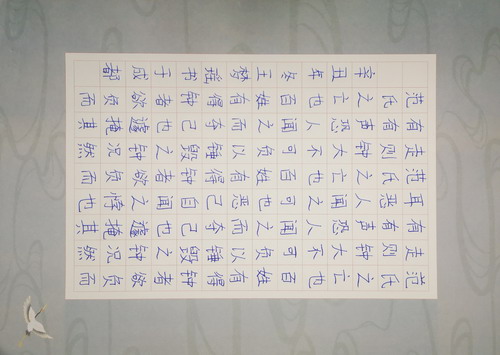 范氏之亡也百姓有得钟者欲负而
走则钟大不可负以锤毁之钟况然
有声恐人闻之而夺己也遽掩其
耳恶人闻之可也恶己自闻之悖也
范氏之亡也百姓有得钟者欲负而
走则钟大不可负以锤毁之钟况然
有声恐人闻之而夺己也遽掩其
范氏之亡也百姓有得钟者欲负而
辛丑年冬王梦瑶书于成都